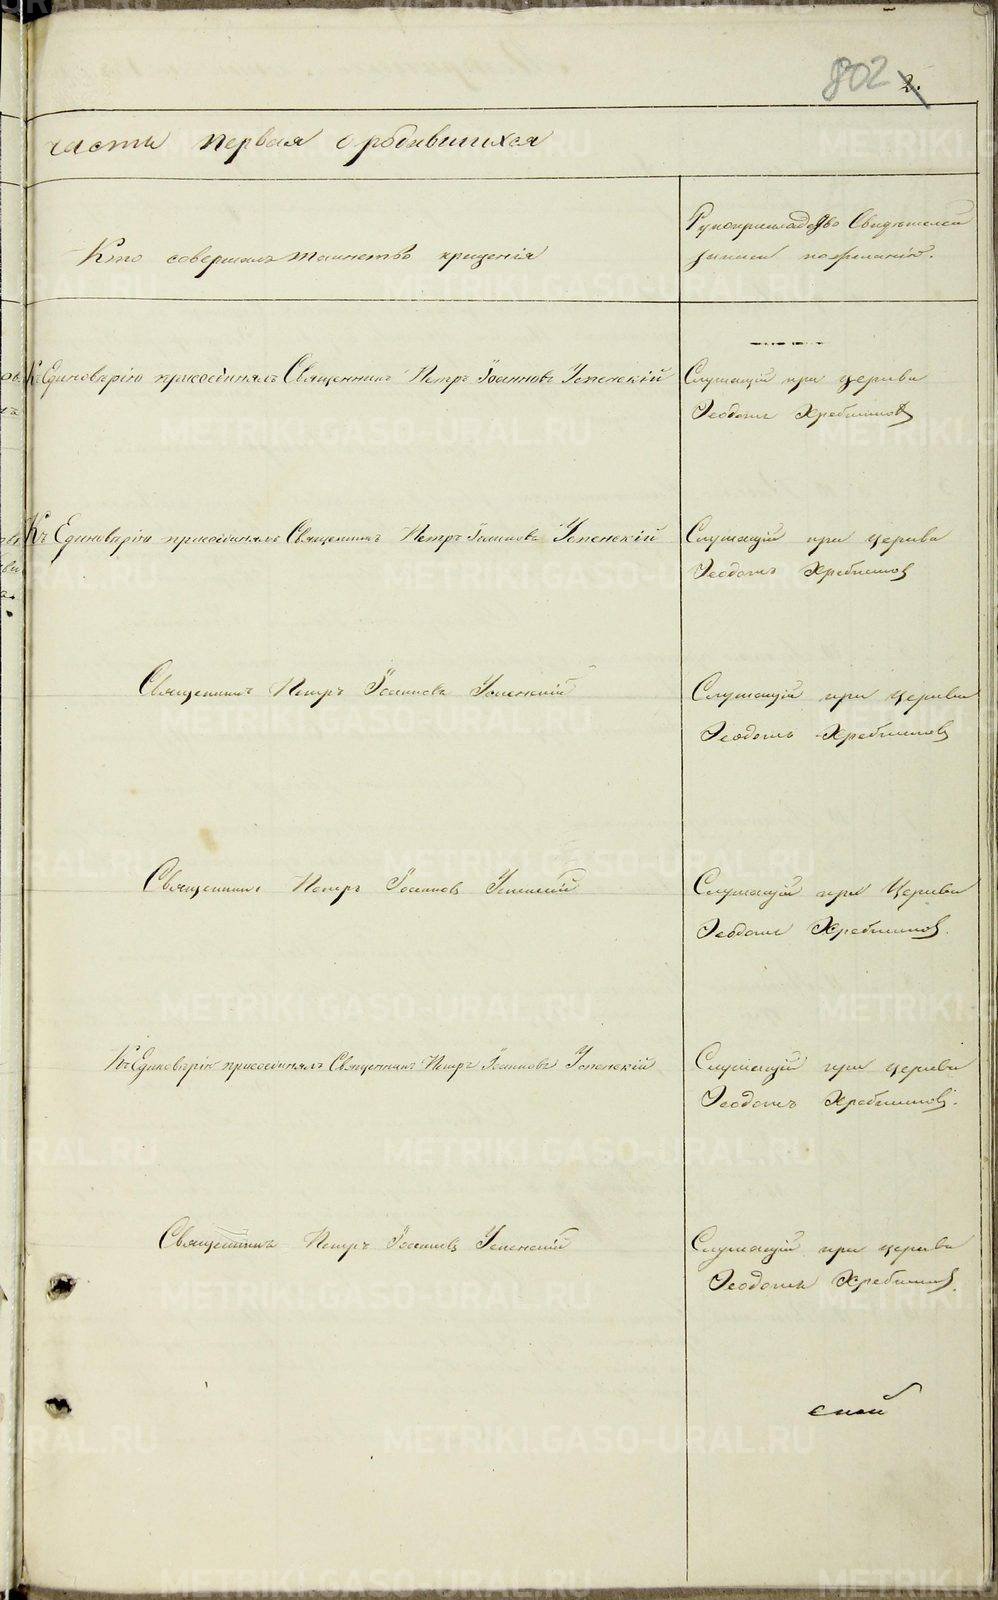 802 2.
часть первая о родившихся
Кто совершалъ таинство крещенія
Рукоприкладство Свидѣтелей
записи по желанію.
Къ Единовѣрію присоединялъ Священникъ Петръ Іоанновъ Успенскій
Служащій при церкви
Ѳеодотъ Хребтиковъ
Къ Единовѣрію присоединялъ Священникъ Петръ Іоанновъ Успенскій
Служащій при церкви
Ѳеодотъ
Священникъ Петръ Іоанновъ Успенскій
Служащій при церкви
Ѳеодотъ
Священникъ Петръ Іоанновъ Успенскій
Служащій при Церкви
Ѳеодотъ
Къ Единовѣрію присоединялъ Священникъ Петръ Іоанновъ Успенскій
Служащій при церкви
Ѳеодотъ
Священникъ Петръ Іоанновъ Успенскій
Служащій при церкви
Ѳеодотъ
METRIKI.GASO-URAL.RU